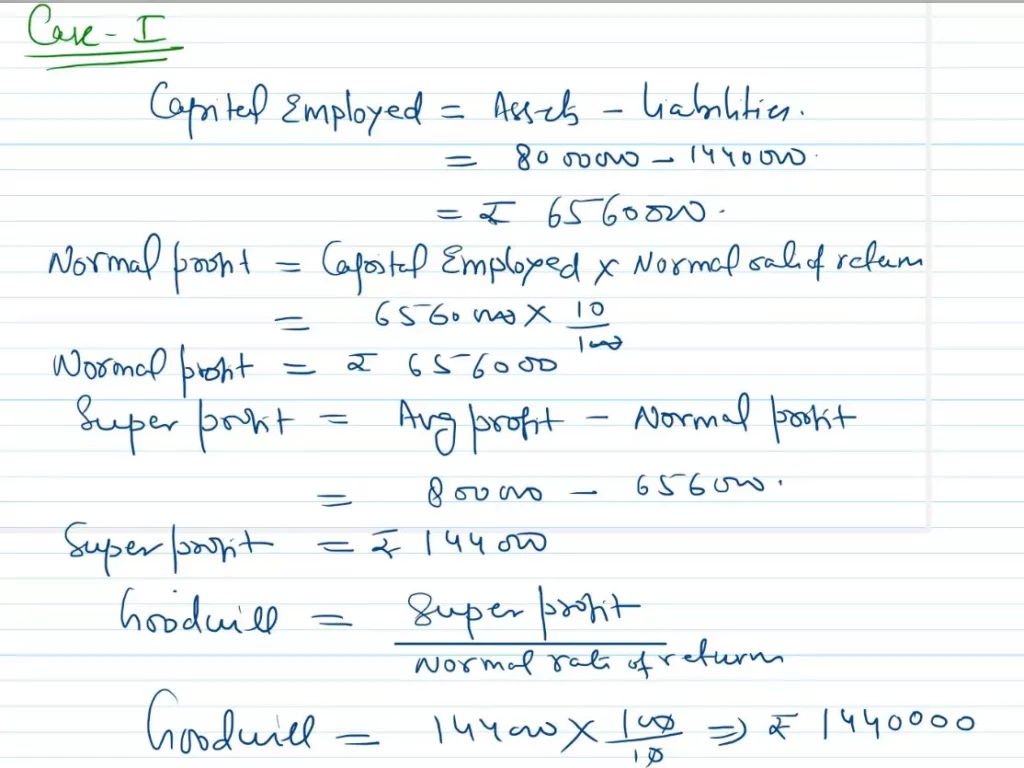 Case - I
Capital Employed = Assets - Liabilities.
= 8000000 - 1440000.
= ₹ 6560000.
Normal profit = Capital Employed × Normal rate of return
= 6560000 × 10/100
Normal profit = ₹ 656000
Super profit = Avg profit - Normal profit
= 800000 - 656000.
Super profit = ₹ 144000
Goodwill = Super profit / Normal rate of return
Goodwill = 144000 × 100/10 ⇒ ₹ 1440000